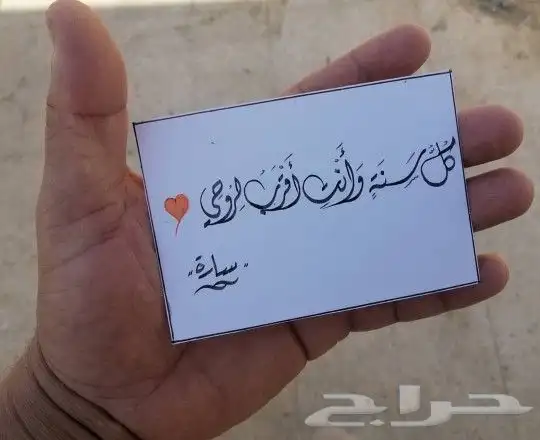 كُلُّ سَنَةٍ وَأَنْتِ أَقْرَبُ لِرُوحِي
"سارة"
حراج